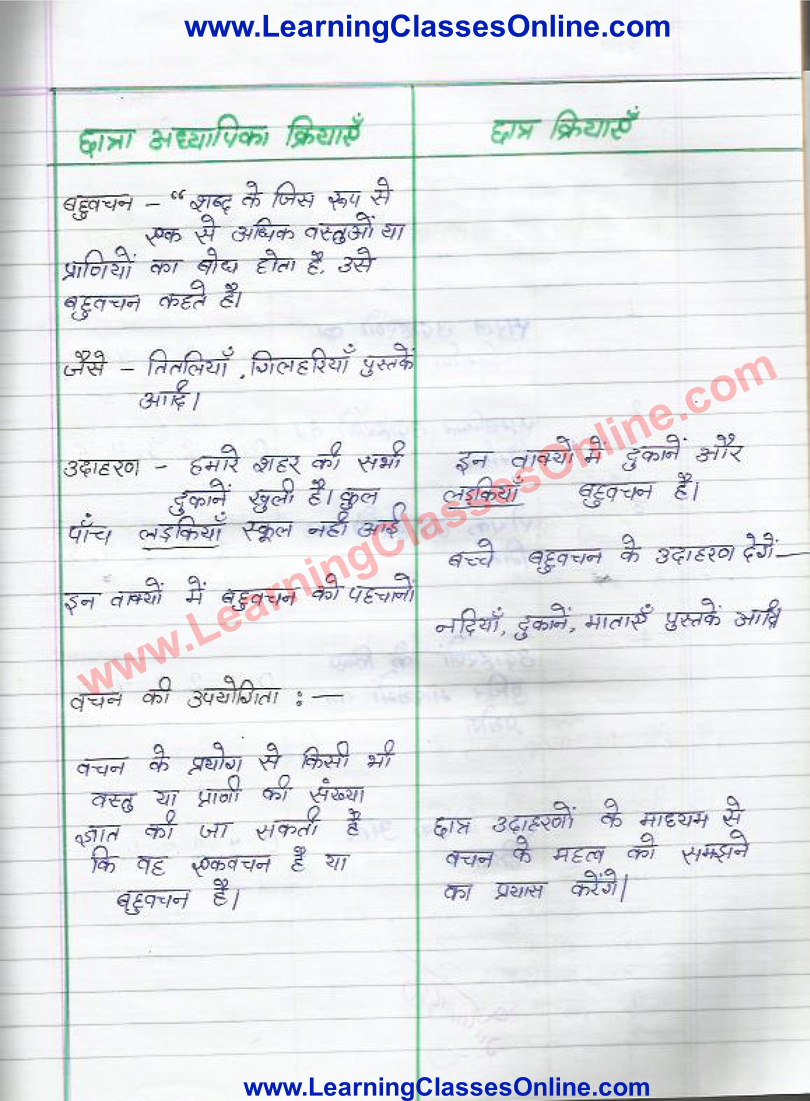 www.LearningClassesOnline.com
छात्रा अध्यापिका क्रियाएँ
बहुवचन - “ शब्द के जिस रूप से
एक से अधिक वस्तुओं या
प्राणियों का बोध होता है, उसे
बहुवचन कहते है।
जैसे - तितलियाँ , गिलहरियाँ पुस्तकें
आदि।
उदाहरण - हमारे शहर की सभी
दुकानें खुली है। कुल
पाँच लड़कियाँ स्कूल नही आई
इन वाक्यों में बहुवचन को पहचानों
वचन की उपयोगिता : —
वचन के प्रयोग से किसी भी
वस्तु या प्राणी की संख्या
ज्ञात की जा सकती है
कि वह एकवचन है या
बहुवचन है।
छात्र क्रियाएँ
इन वाक्यों में दुकानें और
लड़कियाँ बहुवचन है।
बच्चे बहुवचन के उदाहरण देगें —
नदियाँ, दुकानें, माताएँ पुस्तकें आदि
छात्र उदाहरणों के माध्यम से
वचन के महत्व को समझने
का प्रयास करेंगे।
www.LearningClassesOnline.com
www.LearningClassesOnline.com